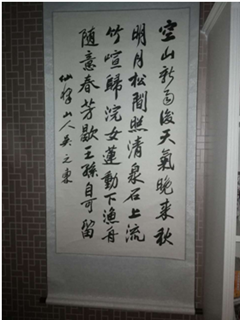 空山新雨後天氣晚來秋
明月松間照清泉石上流
竹喧歸浣女蓮動下漁舟
隨意春芳歇王孫自可留
山人吳之東